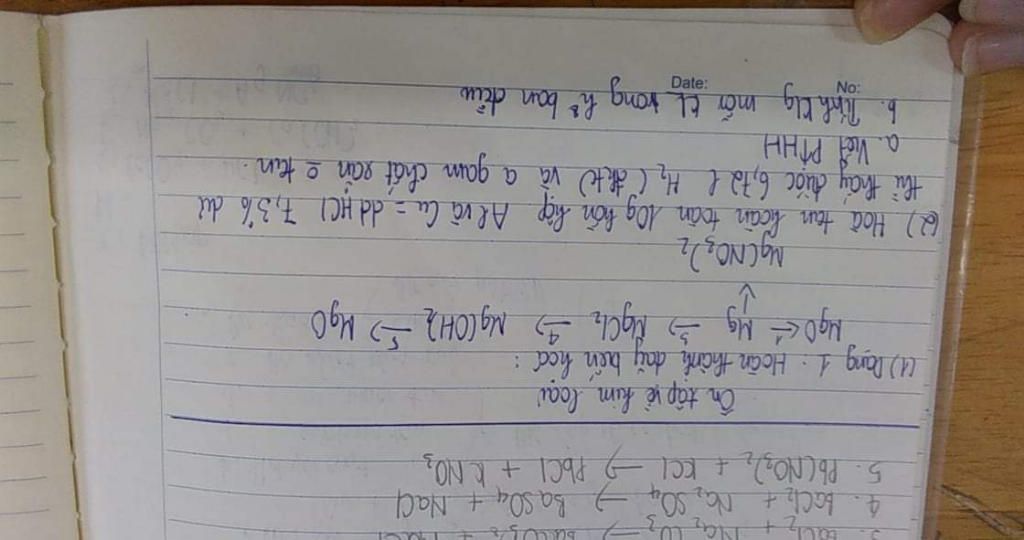 3. BaCl₂ + Na₂CO₃ →
4. BaCl₂ + Na₂SO₄ → BaSO₄ + NaCl
5. Pb(NO₃)₂ + KCl → PbCl + KNO₃
Ôn tập về kim loại
(1) Dạng 1: Hoàn thành dãy biến hoá:
MgO ←¹ Mg →³ MgCl₂ →⁴ Mg(OH)₂ →⁵ MgO
↓
Mg(NO₃)₂
(2) Hoà tan hoàn toàn 10g hỗn hợp Al và Cu = dd HCl 7,3% dư
thì thấy được 6,72 l H₂ (đktc) và a gam chất rắn o tan.
a. Viết PTHH
b. Tính klg mỗi kl trong h² ban đầu
No:
Date: